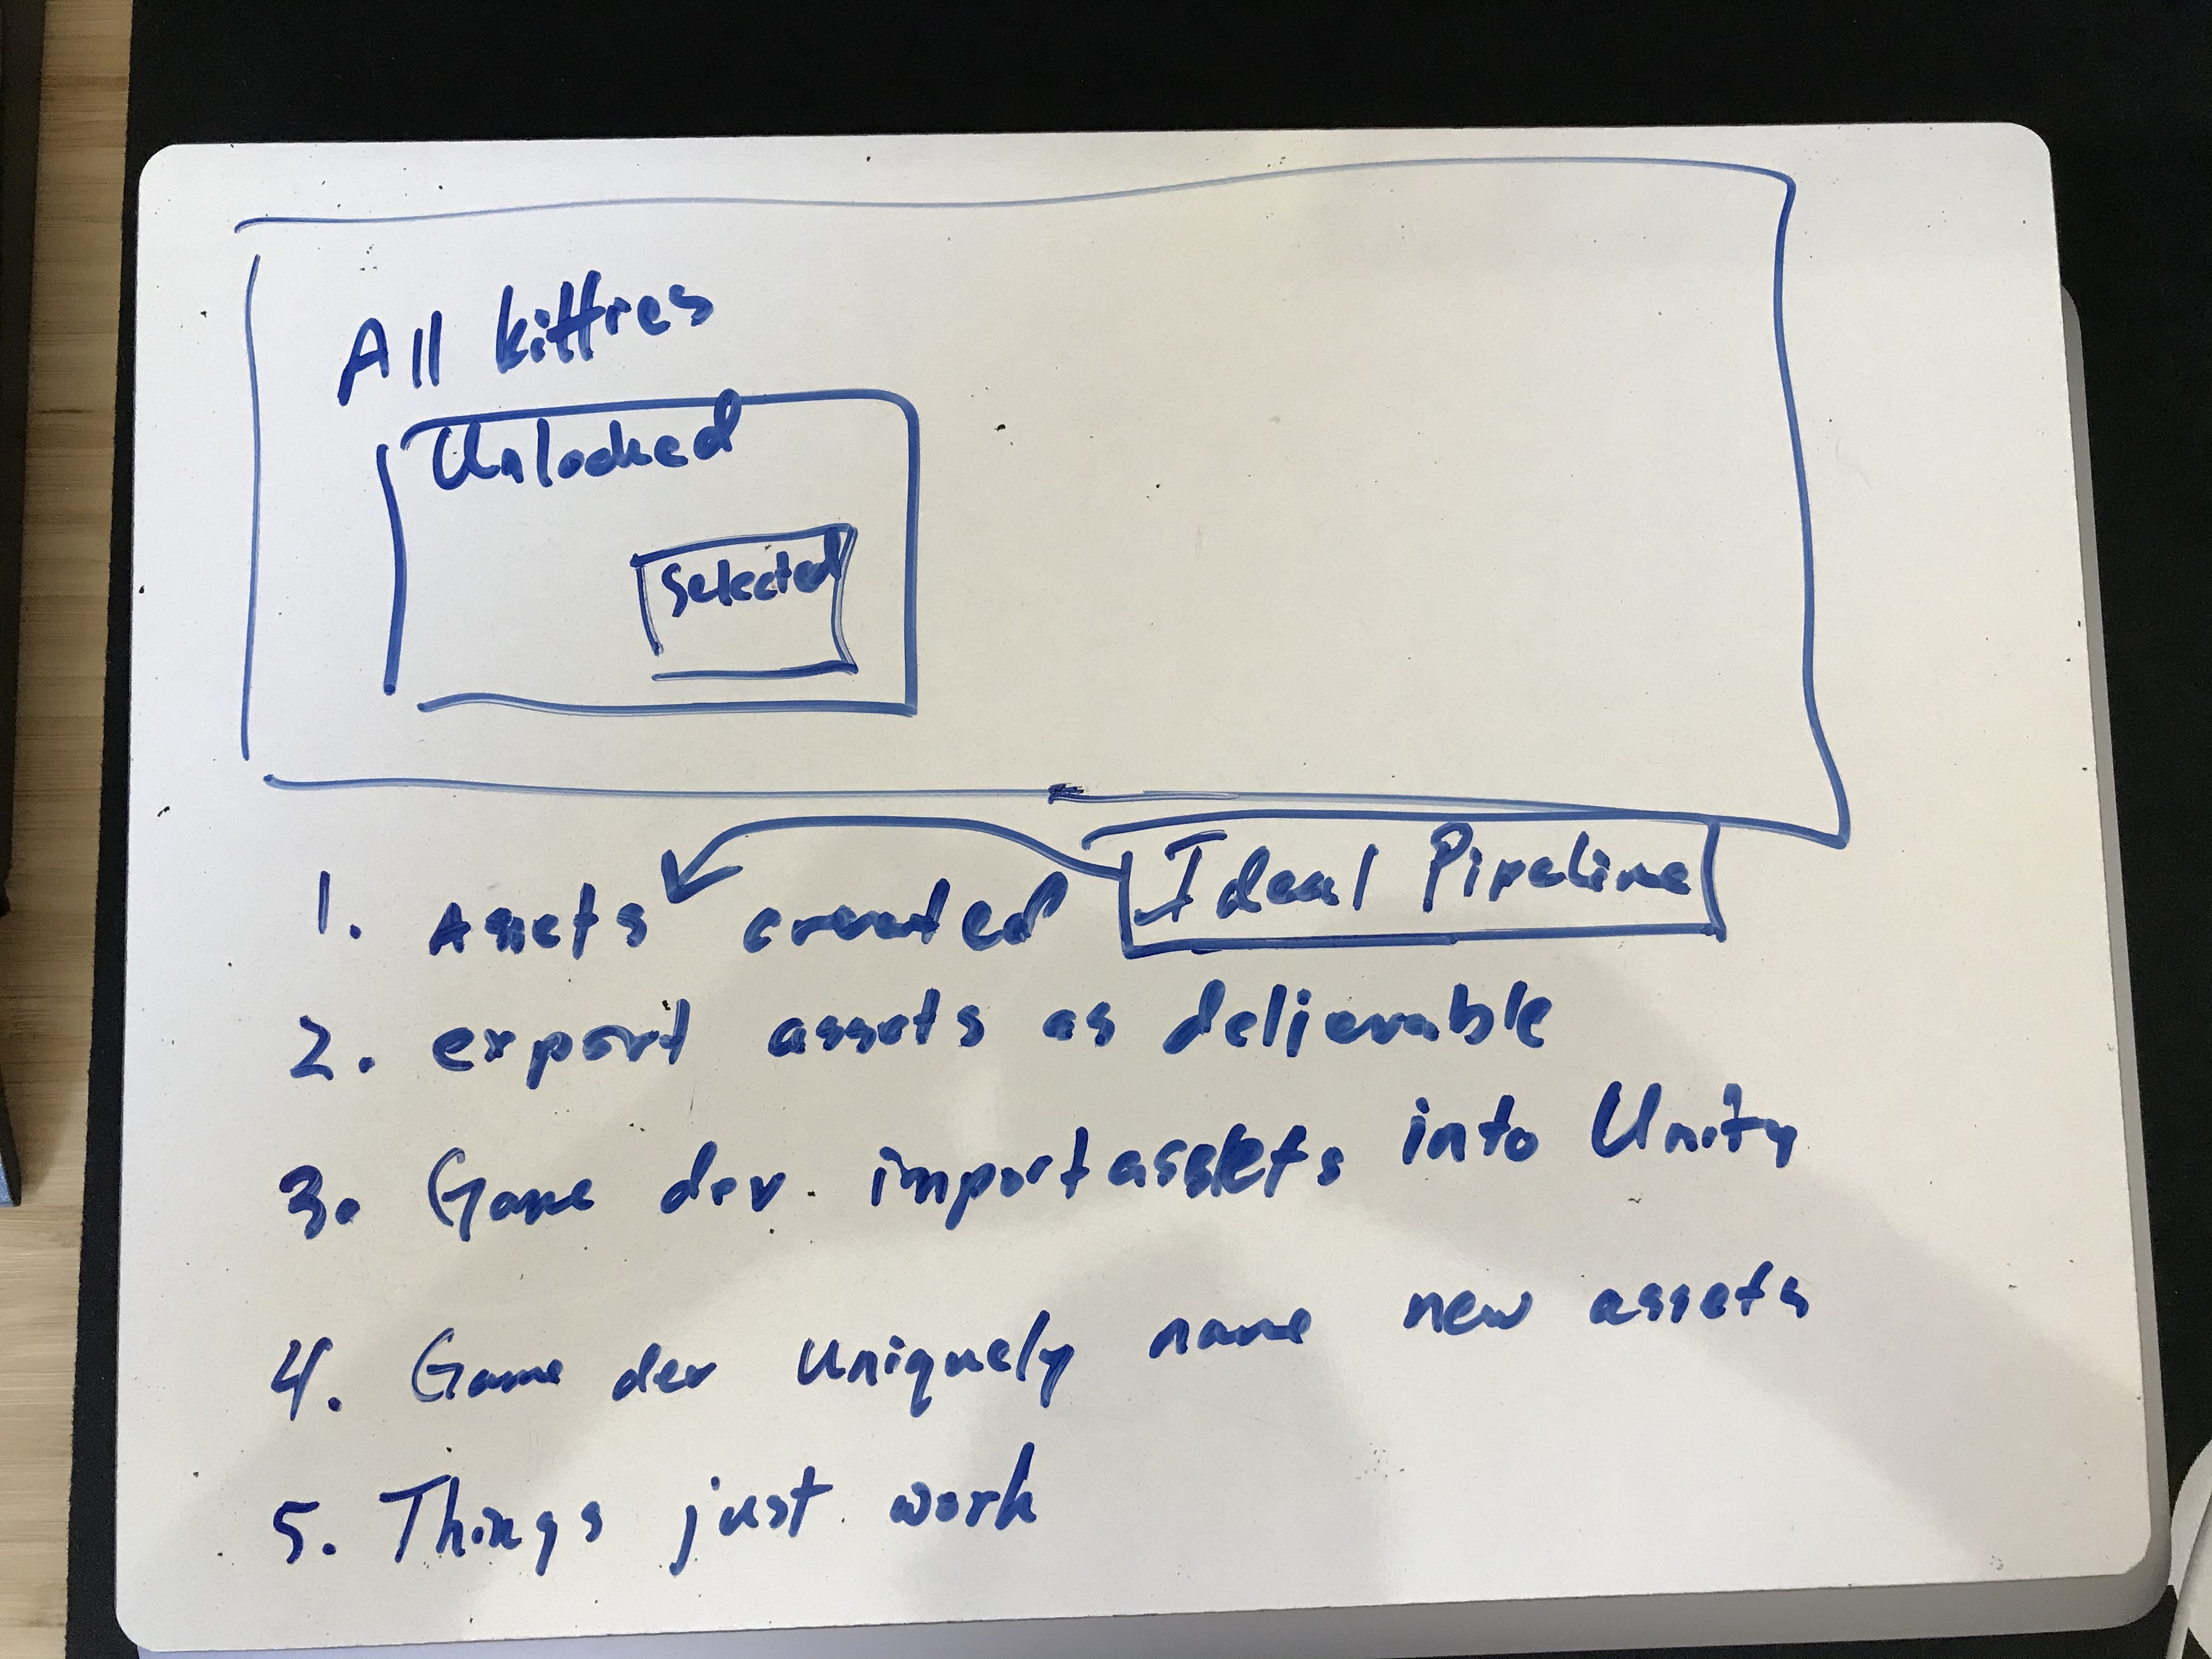 All kittres
Unlocked
Selected
Ideal Pipeline
1. Assets created
2. export assets as delievable
3. Game dev. import assets into Unity
4. Game dev uniquely name new assets
5. Things just work